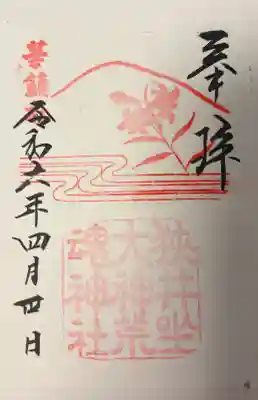 奉拝
華鎮
狭井坐
大神荒
魂神社
令和六年四月廿日